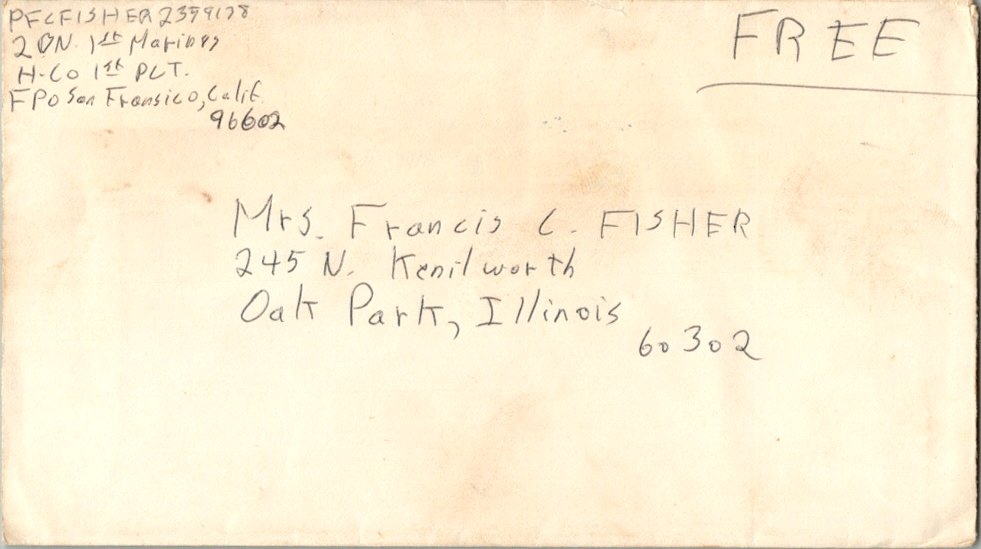 PFC FISHER 2379178
2 BN. 1st Marines
H-Co 1st PLT.
FPO San Fransico, Calif.
96602
FREE
Mrs. Francis C. FISHER
245 N. Kenilworth
Oak Park, Illinois
60302